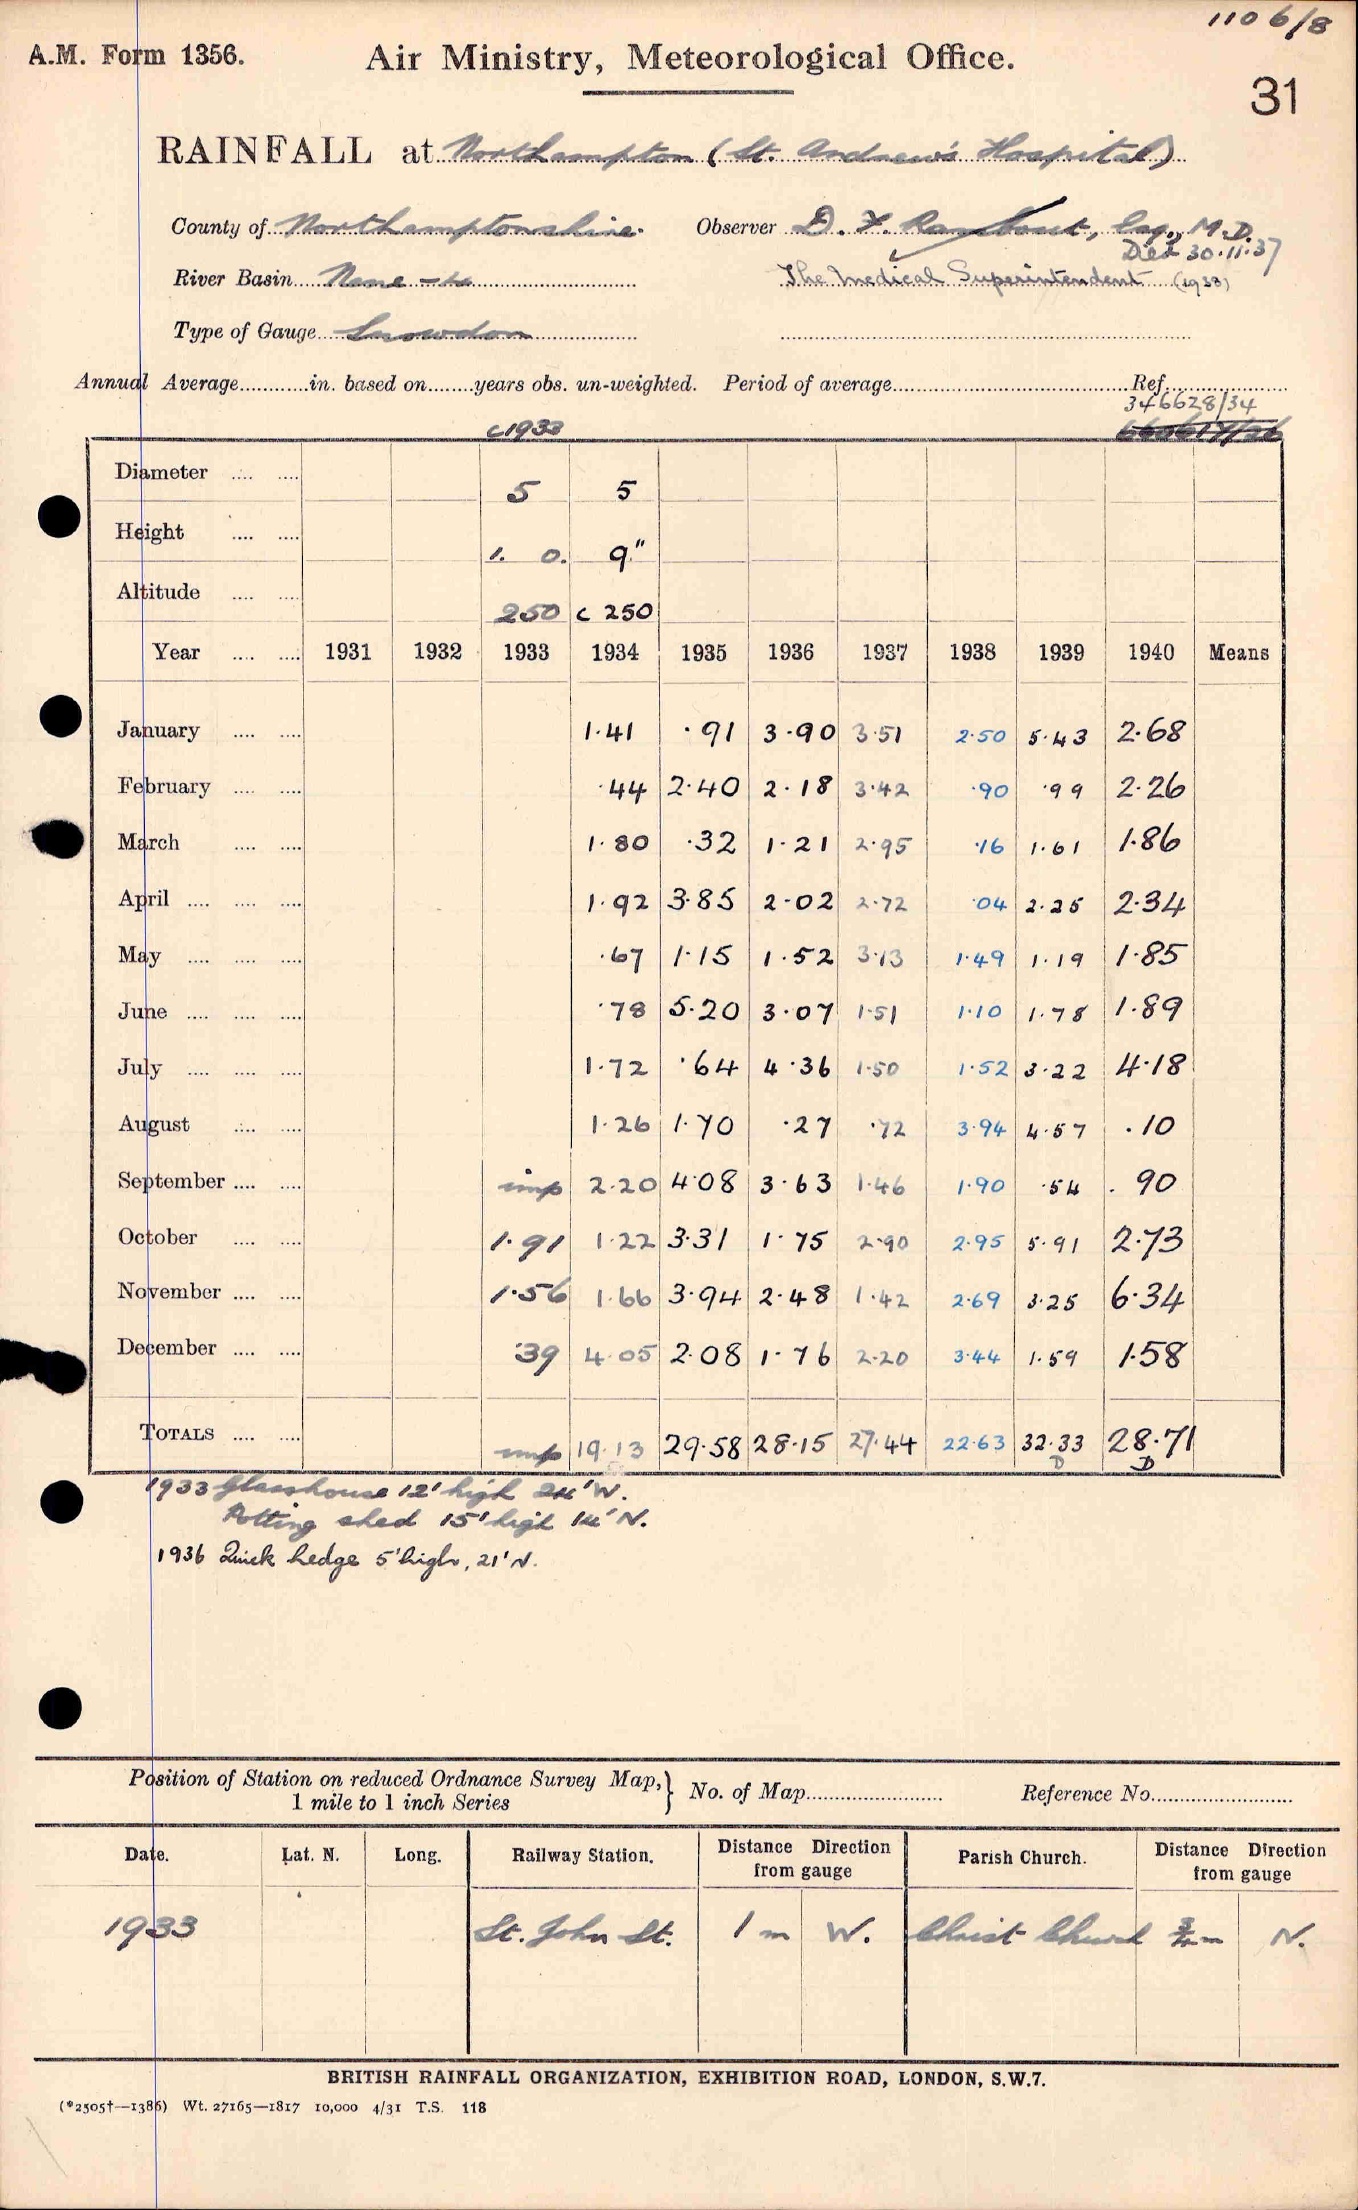 1106/8
A.M. Form 1356.
Air Ministry, Meteorological Office.
31
RAINFALL at Northampton (St. Andrew's Hospital)
County of Northamptonshire. Observer D. F. Rambout, Esq., M.D.
Died 30.11.37
River Basin Nene The Medical Superintendent (1938)
Type of Gauge Snowdon
Annual Average in. based on years obs. un-weighted. Period of average Ref.
346628/34
c1933
Diameter 5 5
Height 1. 0. 9"
Altitude 250 c 250
Year 1931 1932 1933 1934 1935 1936 1937 1938 1939 1940 Means
January 1.41 .91 3.90 3.51 2.50 5.43 2.68
February .44 2.40 2.18 3.42 .90 .99 2.26
March 1.80 .32 1.21 2.95 .16 1.61 1.86
April 1.92 3.85 2.02 2.72 .04 2.25 2.34
May .67 1.15 1.52 3.13 1.49 1.19 1.85
June .78 5.20 3.07 1.51 1.10 1.78 1.89
July 1.72 .64 4.36 1.50 1.52 3.22 4.18
August 1.26 1.70 .27 .72 3.94 4.57 .10
September imp 2.20 4.08 3.63 1.46 1.90 .54 .90
October 1.91 1.22 3.31 1.75 2.90 2.95 5.91 2.73
November 1.56 1.66 3.94 2.48 1.42 2.69 3.25 6.34
December .39 4.05 2.08 1.76 2.20 3.44 1.59 1.58
TOTALS imp 19.13 29.58 28.15 27.44 22.63 32.33 28.71
D D
1933 Glasshouse 12' high 24' W.
Potting shed 15' high 14' N.
1936 Quick hedge 5' high, 21' N.
Position of Station on reduced Ordnance Survey Map, } No. of Map Reference No.
1 mile to 1 inch Series
Date. Lat. N. Long. Railway Station. Distance Direction from gauge Parish Church. Distance Direction from gauge
1933 St. John St. 1 m W. Christ Church 3/4 m N.
BRITISH RAINFALL ORGANIZATION, EXHIBITION ROAD, LONDON, S.W.7.
(*2505†—1386) Wt. 27165—1817 10,000 4/31 T.S. 118